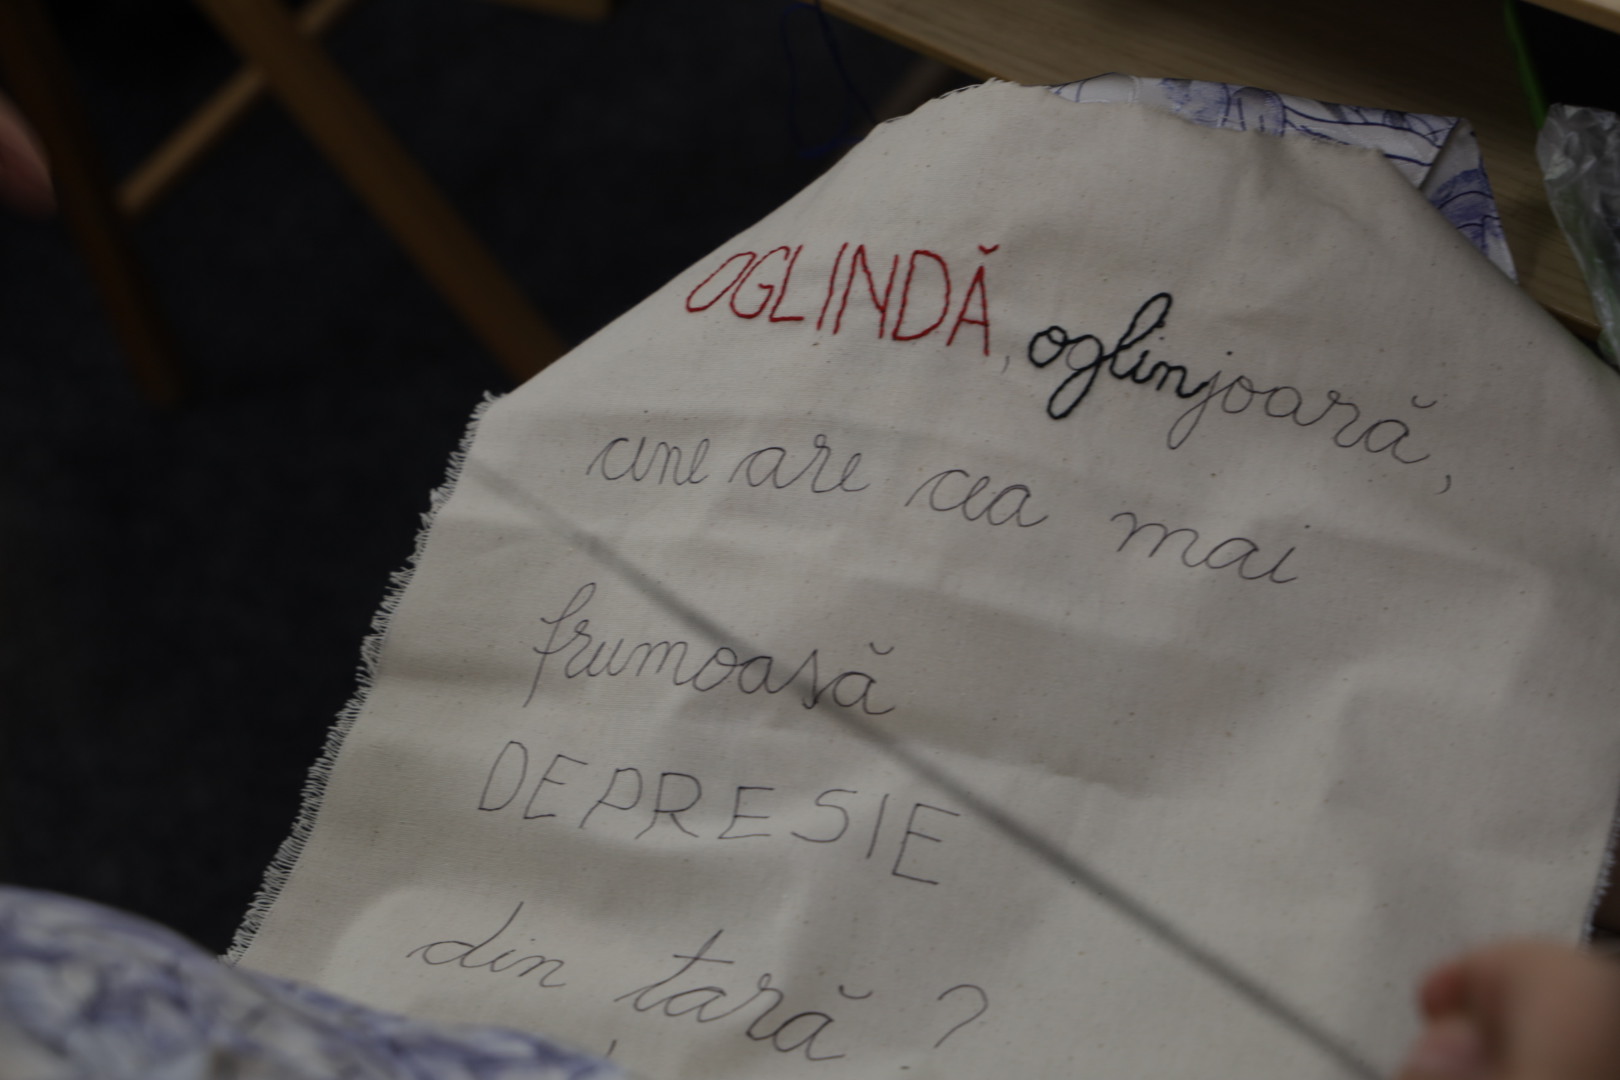 OGLINDĂ, oglinjoară,
cine are cea mai
frumoasă
DEPRESIE
din țară?